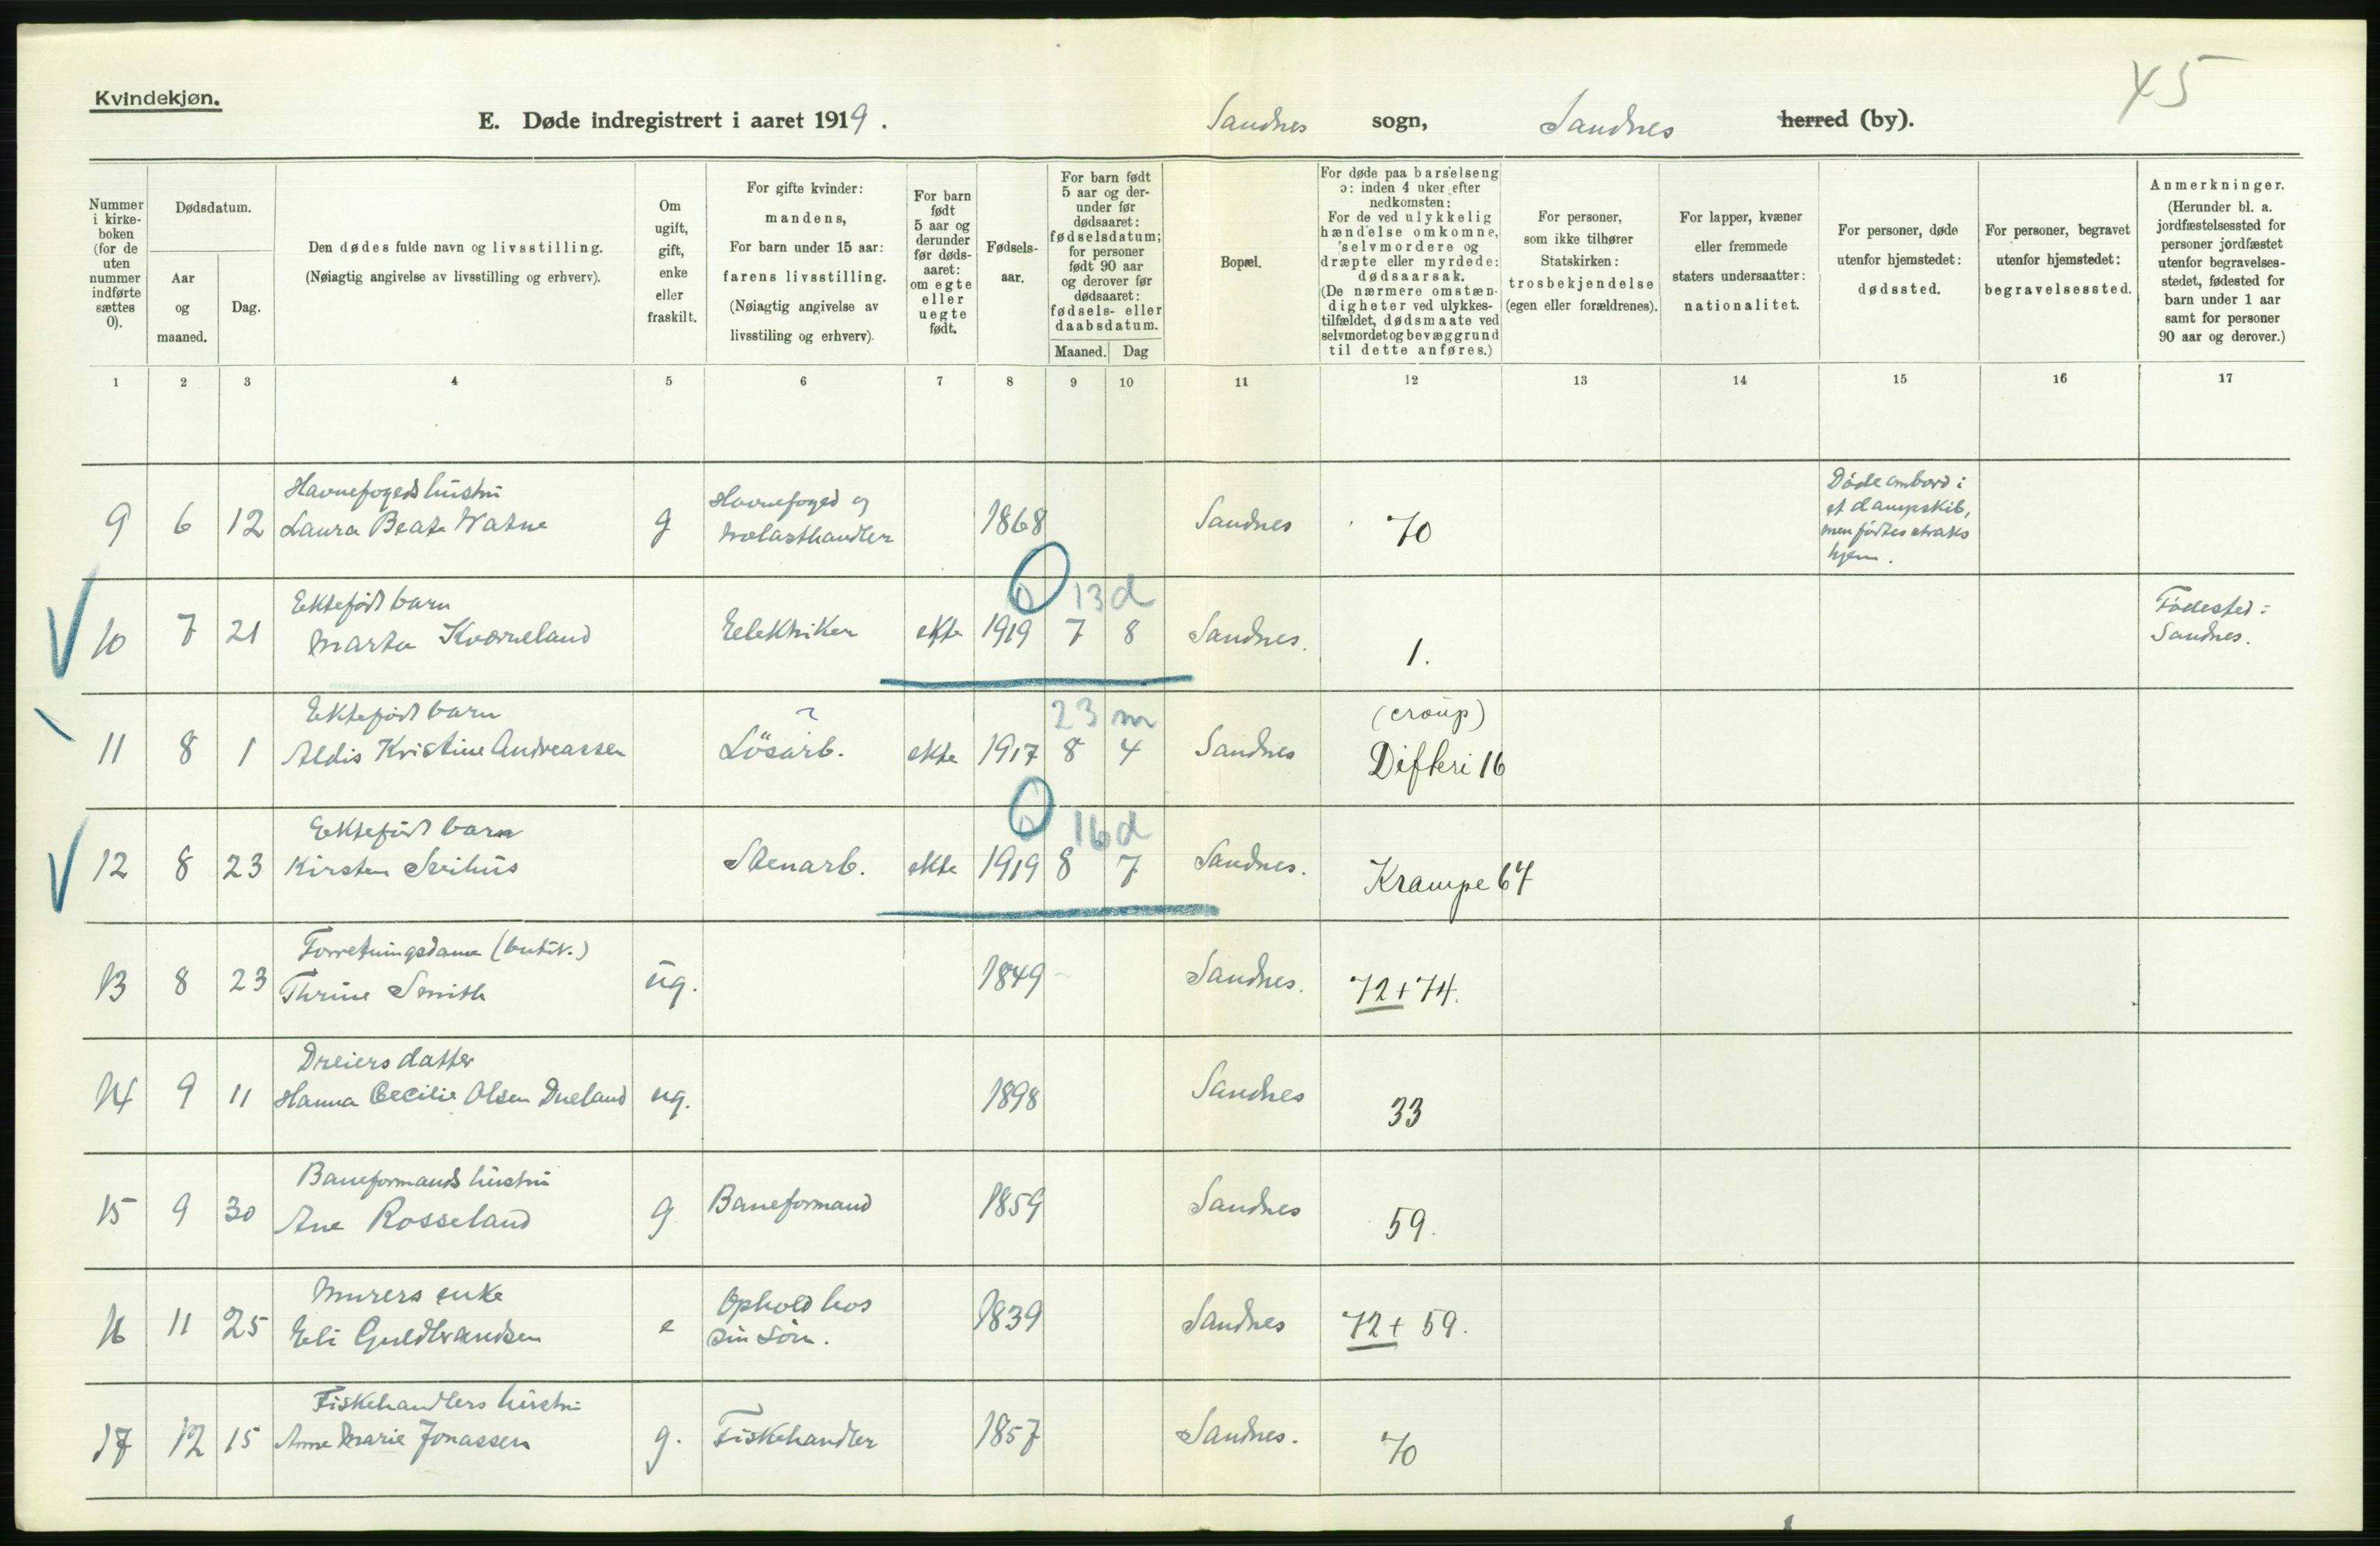 45
Kvindekjøn.
E. Døde indregistrert i aaret 1919. Sandnes sogn, Sandnes herred (by).
Nummer
i kirke-
boken
(for de
uten
nummer
indførte
sættes
0).
Dødsdatum.
Aar
og
maaned.
Dag.
Den dødes fulde navn og livsstilling.
(Nøiagtig angivelse av livsstilling og erhverv).
Om
ugift,
gift,
enke
eller
fraskilt.
For gifte kvinder:
mandens,
For barn under 15 aar:
farens livsstilling.
(Nøiagtig angivelse av
livsstiling og erhverv).
For barn
født
5 aar og
derunder
før døds-
aaret:
om egte
eller
uegte
født.
Fødsels-
aar.
For barn født
5 aar og der-
under før
dødsaaret:
fødselsdatum;
for personer
født 90 aar
og derover før
dødsaaret:
fødsels- eller
daabsdatum.
Maaned. Dag
Bopæl.
For døde paa barselseng
ɔ: inden 4 uker efter
nedkomsten:
For de ved ulykkelig
hændelse omkomne,
selvmordere og
dræpte eller myrdede:
dødsaarsak.
(De nærmere omstæn-
digheter ved ulykkes-
tilfældet, dødsmaate ved
selvmordet og bevæggrund
til dette anføres.)
For personer,
som ikke tilhører
Statskirken:
trosbekjendelse
(egen eller forældrenes).
For lapper, kvæner
eller fremmede
staters undersaatter:
nationalitet.
For personer, døde
utenfor hjemstedet:
dødssted.
For personer, begravet
utenfor hjemstedet:
begravelsessted.
Anmerkninger.
(Herunder bl. a.
jordfæstelsessted for
personer jordfæstet
utenfor begravelses-
stedet, fødested for
barn under 1 aar
samt for personer
90 aar og derover.)
1 2 3 4 5 6 7 8 9 10 11 12 13 14 15 16 17
Havnefogeds hustru
9 6 12 Laura Beate Watne g Havnefoged og
handler 1868 Sandnes 70
Døde ombord i
et dampskib,
men førtes straks
hjem.
0 13 d
Ektefødt barn
10 7 21 Marta Kværneland Eelektriker ekte 1919 7 8 Sandnes. 1.
Fødested:
Sandnes.
23 m
Ektefødt barn (croup)
11 8 1 Aldis Kristine Andreassen Løsarb. ekte 1917 8 4 Sandnes Difteri 16
0 16 d
Ektefødt barn
12 8 23 Kirsten Seihus Stenarb. ekte 1919 8 7 Sandnes. Krampe 64
Forretningsdame (butik.)
13 8 23 Thrine Smith ug. 1849 Sandnes. 72 + 74.
Dreiers datter
14 9 11 Hanna Cecilie Olsen Dueland ug. 1898 Sandnes 33
Baneformands hustru
15 9 30 Ane Rosseland g Baneformand 1859 Sandnes 59.
Murers enke
16 11 25 Eli Guldbrandsen e Ophold hos
sin Søn. 1839 Sandnes 72 + 59.
Fiskehandlers hustru
17 12 15 Anne Marie Jonassen g. Fiskehandler 1857 Sandnes. 70